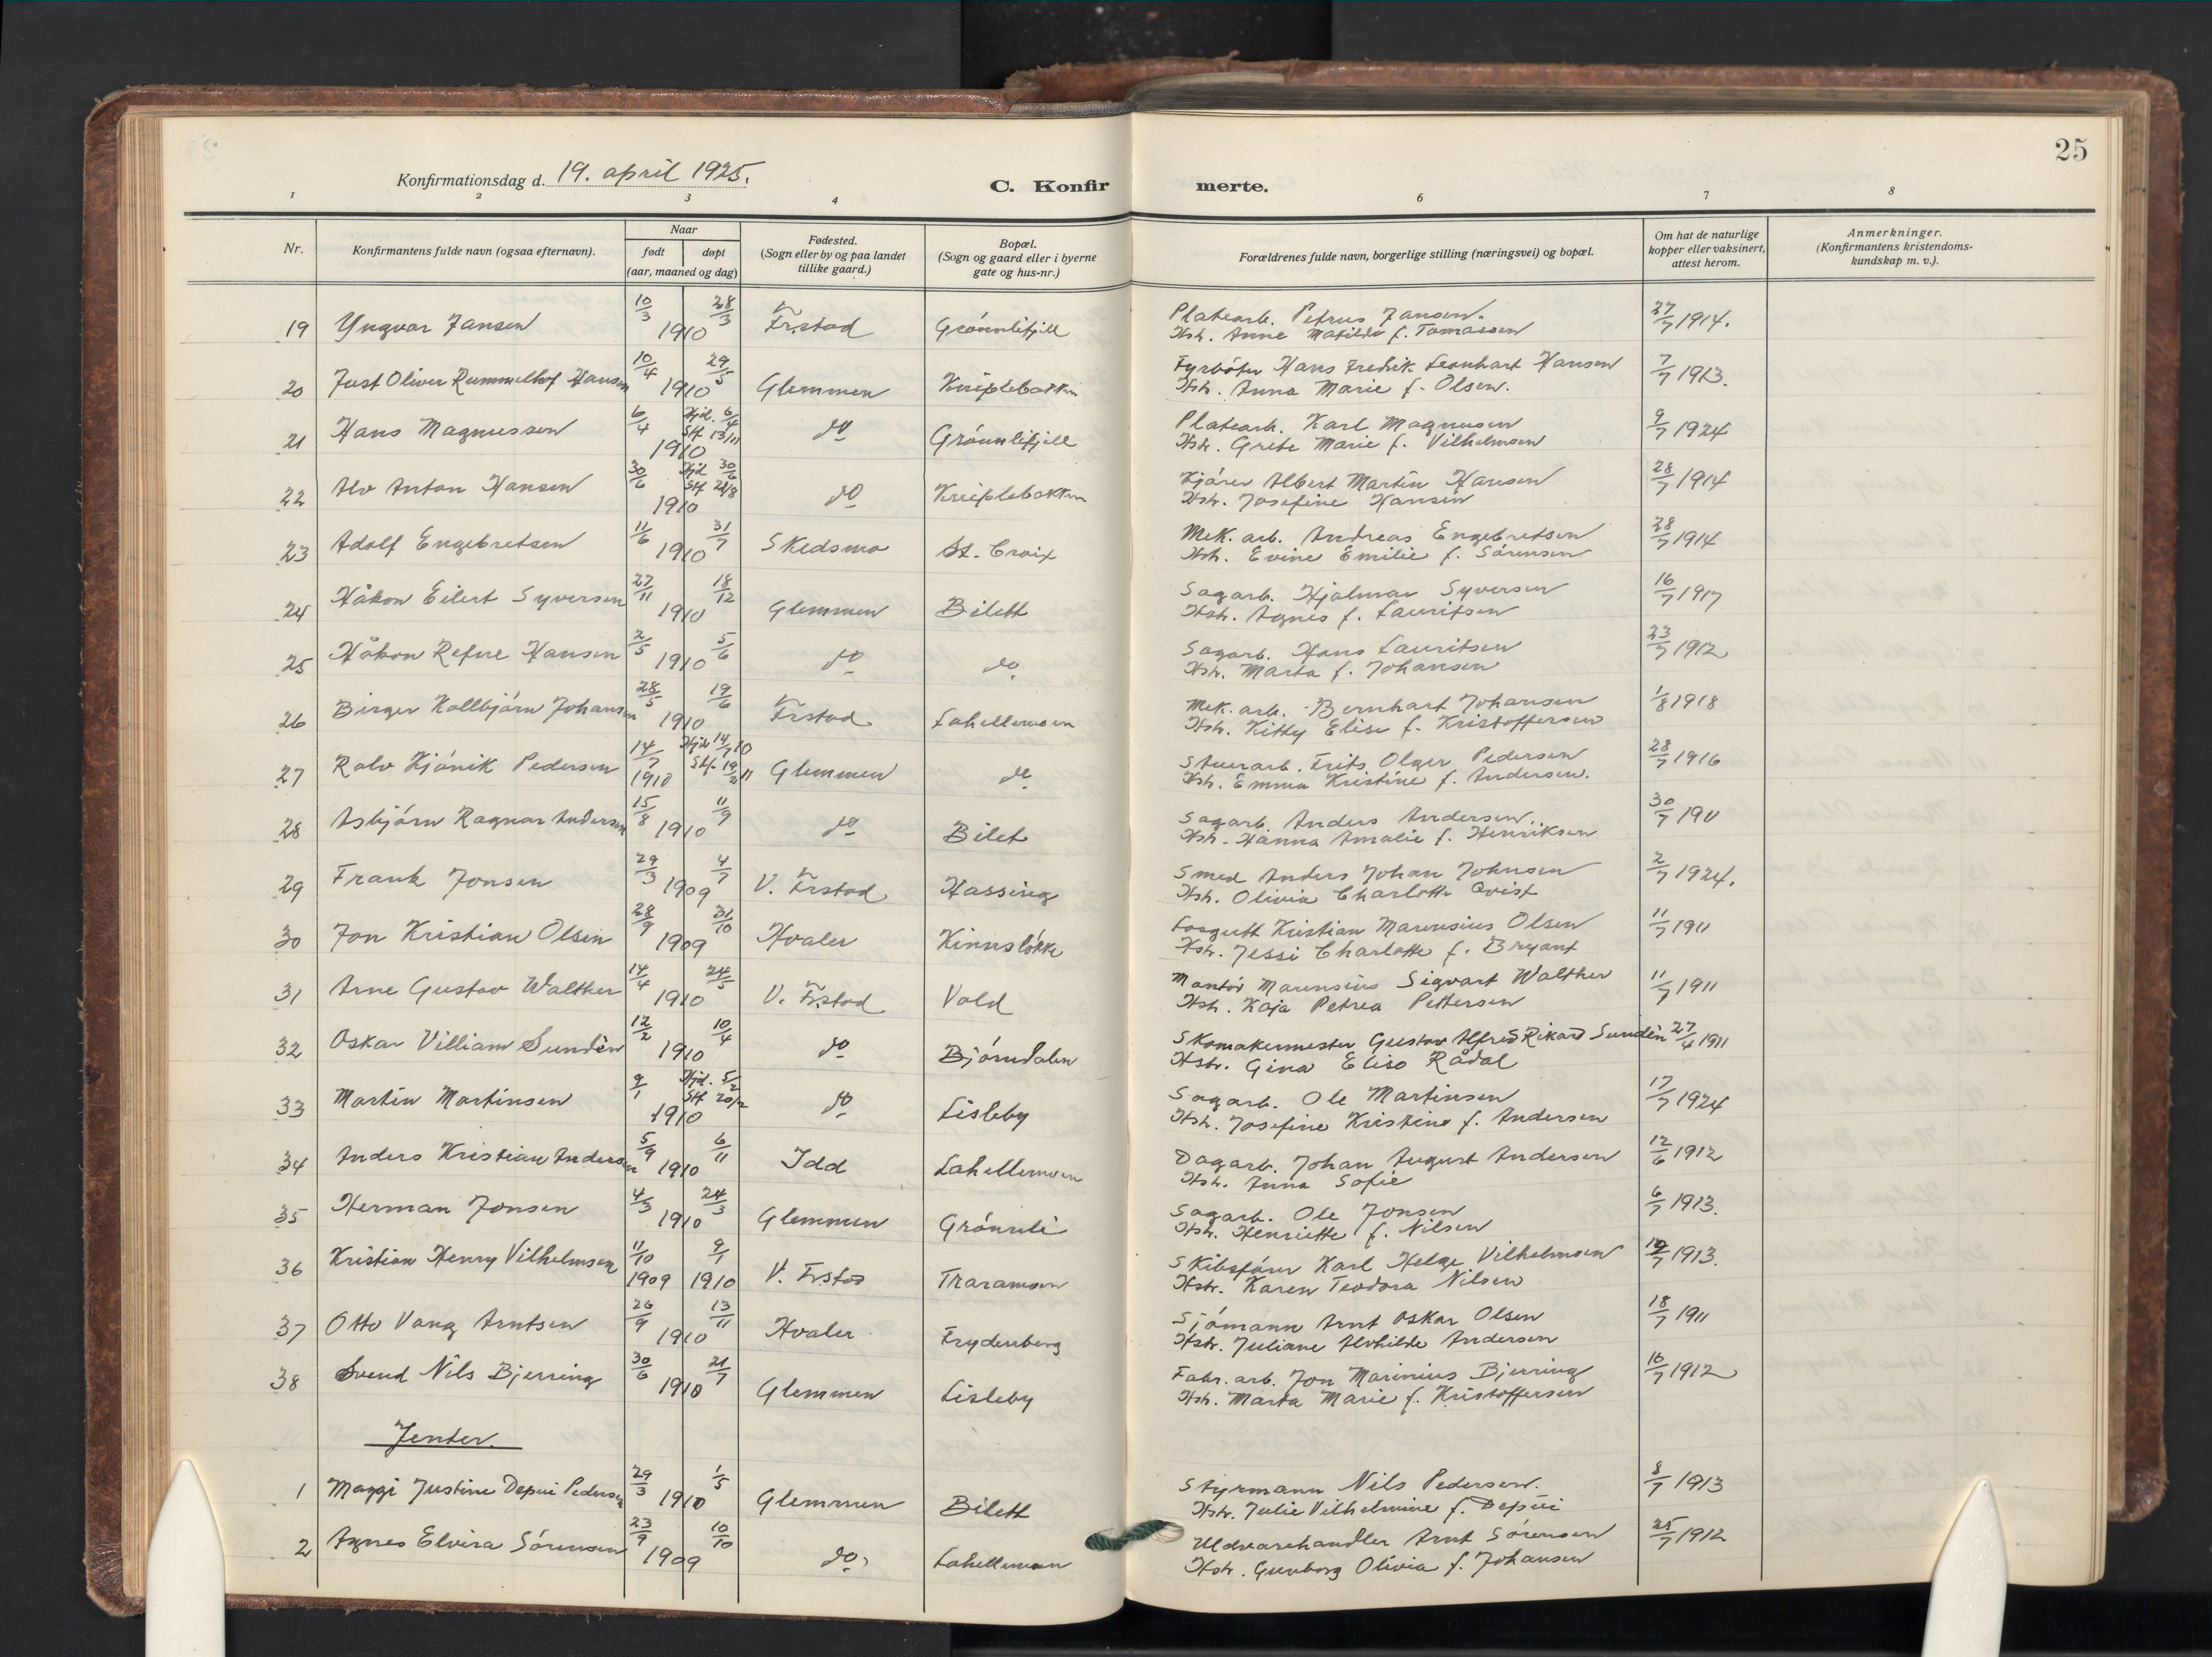 25
Konfirmationsdag d. 19. april 1925.
C. Konfirmerte.
1 2 3 4 6 7 8
Nr.
Konfirmantens fulde navn (ogsaa efternavn).
Naar
født døpt
(aar, maaned og dag)
Fødested.
(Sogn eller by og paa landet
tillike gaard.)
Bopæl.
(Sogn og gaard eller i byerne
gate og hus-nr.)
Forældrenes fulde navn, borgerlige stilling (næringsvei) og bopæl.
Om hat de naturlige
kopper eller vaksinert,
attest herom.
Anmerkninger.
(Konfirmantens kristendoms-
kundskap m. v.).
19 Yngvar Jansen 10/3 28/3 1910 Fr.stad Grønnlifjell Platearb. Petrus Jansen. 27/7 1914.
Hstr. Anne Matilde f. Tomassen
20 Just Oliver Rummelhof Hansen 10/4 29/5 1910 Glemmen Kniplebakken Fyrbøter Hans Fredrik Leonhart Hansen 7/7 1913.
Hstr. Anna Marie f. Olsen.
21 Hans Magnussen 6/4 Hjd. 6/4 Stf. 13/11 1910 do Grønnlifjell Platearb. Karl Magnusen 9/7 1924
Hstr. Grete Marie f. Vilhelmsen
22 Alv Anton Hansen 30/6 Hjd 30/6 Stf 21/8 1910 do Kniplebakken Kjører Albert Martin Hansen 28/7 1914
Hstr. Josefine Hansen
23 Adolf Engebretsen 11/6 31/7 1910 Skedsmo St. Croix Mek. arb. Andreas Engebretsen 28/7 1914
Hstr. Evine Emilie f. Sørensen
24 Håkon Eilert Syversen 27/11 18/12 1910 Glemmen Bilett Sagarb. Hjalmar Syversen 16/7 1917
Hstr. Agnes f. Lauritsen
25 Håkon Refne Hansen 2/5 5/6 1910 do do Sagarb. Hans Lauritsen 23/7 1912
Hstr. Marta f. Johansen
26 Birger Kollbjørn Johansen 28/5 19/6 1910 Fr.stad Lahellemoen Mek. arb. Bernhart Johansen 1/8 1918
Hstr. Kitty Elise f. Kristoffersen
27 Ralv Kjønik Pedersen 14/7 1910 Hjd 14/7 10 Stf. 19/2 11 Glemmen do Stuerarb. Frits Olger Pedersen 28/7 1916
Hstr. Emma Kristine f. Andersen.
28 Asbjørn Ragnar Andersen 15/8 11/9 1910 do Bilet Sagarb. Anders Andersen. 30/7 1911
Hstr. Hanna Amalie f. Henriksen
29 Frank Jonsen 29/3 4/7 1909 V. Fr.stad Hassing Smed Anders Johan Johnsen 2/7 1924.
Hstr. Olivia Charlotte Qvist
30 Jon Kristian Olsen 28/9 31/10 1909 Hvaler Kinnsløkka Losgutt Kristian Marensius Olsen 11/7 1911
Hstr. Jessi Charlotte f. Bryant
31 Arne Gustav Walther 14/4 24/5 1910 V. Fr.stad Vold Montør Marensius Sigvart Walther 11/7 1911
Hstr. Kaja Petrea Pettersen
32 Oskar Villiam Sundèn 12/2 10/4 1910 do Bjørndalen Skomakermester Gustav Alfred Rikard Sundèn 27/4 1911
Hstr. Gina Elise Rådal
33 Martin Martinsen 9/1 Hjd. 5/2 Stf. 20/2 1910 do Lisleby Sagarb. Ole Martinsen 17/7 1924
Hstr. Josefine Kristine f. Andersen
34 Anders Kristian Andersen 5/9 6/11 1910 Idd Lahellemoen Dagarb. Johan August Andersen 12/6 1912
Hstr. Anna Sofie
35 Herman Jonsen 4/3 24/3 1910 Glemmen Grønnli Sagarb. Ole Jonsen 6/7 1913.
Hstr. Henriette f. Nilsen
36 Kristian Henry Vilhelmsen 11/10 1909 9/1 1910 V. Fr.stad Traramoen Skibsfører Karl Helge Vilhelmsen /7 1913.
Hstr. Karen Teodora Nilsen
37 Otto Vang Arntsen 26/9 13/11 1910 Hvaler Frydenberg Sjømann Arnt Oskar Olsen 18/7 1911
Hstr. Juliane Alvhilde Andersen
38 Svend Nils Bjerring 30/6 21/7 1910 Glemmen Lisleby Fabr. arb. Jon Marinius Bjerring 16/7 1912
Hstr. Marta Marie f. Kristoffersen
Jenter.
1 Maggi Justine Depui Pedersen 29/3 1/5 1910 Glemmen Bilett Styrmann Nils Pedersen. 8/7 1913
Hstr. Julie Vilhelmine f. Depui
2 Agnes Elvira Sørensen 23/9 10/10 1909 do Lahellemoen Uldvarehandler Arnt Sørensen 25/7 1912
Hstr. Gunborg Olivia f. Johansen